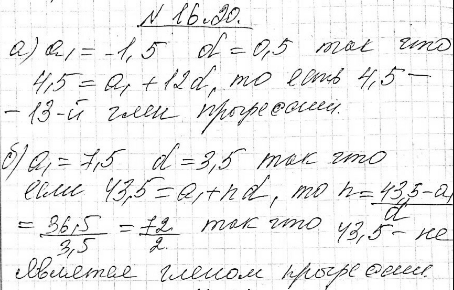 N 16.20.
а) a₁ = -1,5 d = 0,5 так что
4,5 = a₁ + 12d, то есть 4,5 -
- 13-й член прогрессии.
б) a₁ = 7,5 d = 3,5 так что
если 43,5 = a₁ + nd, то n = (43,5 - a₁)/d
= 36,5/3,5 = 72/2. так что 43,5 - не
является членом прогрессии.